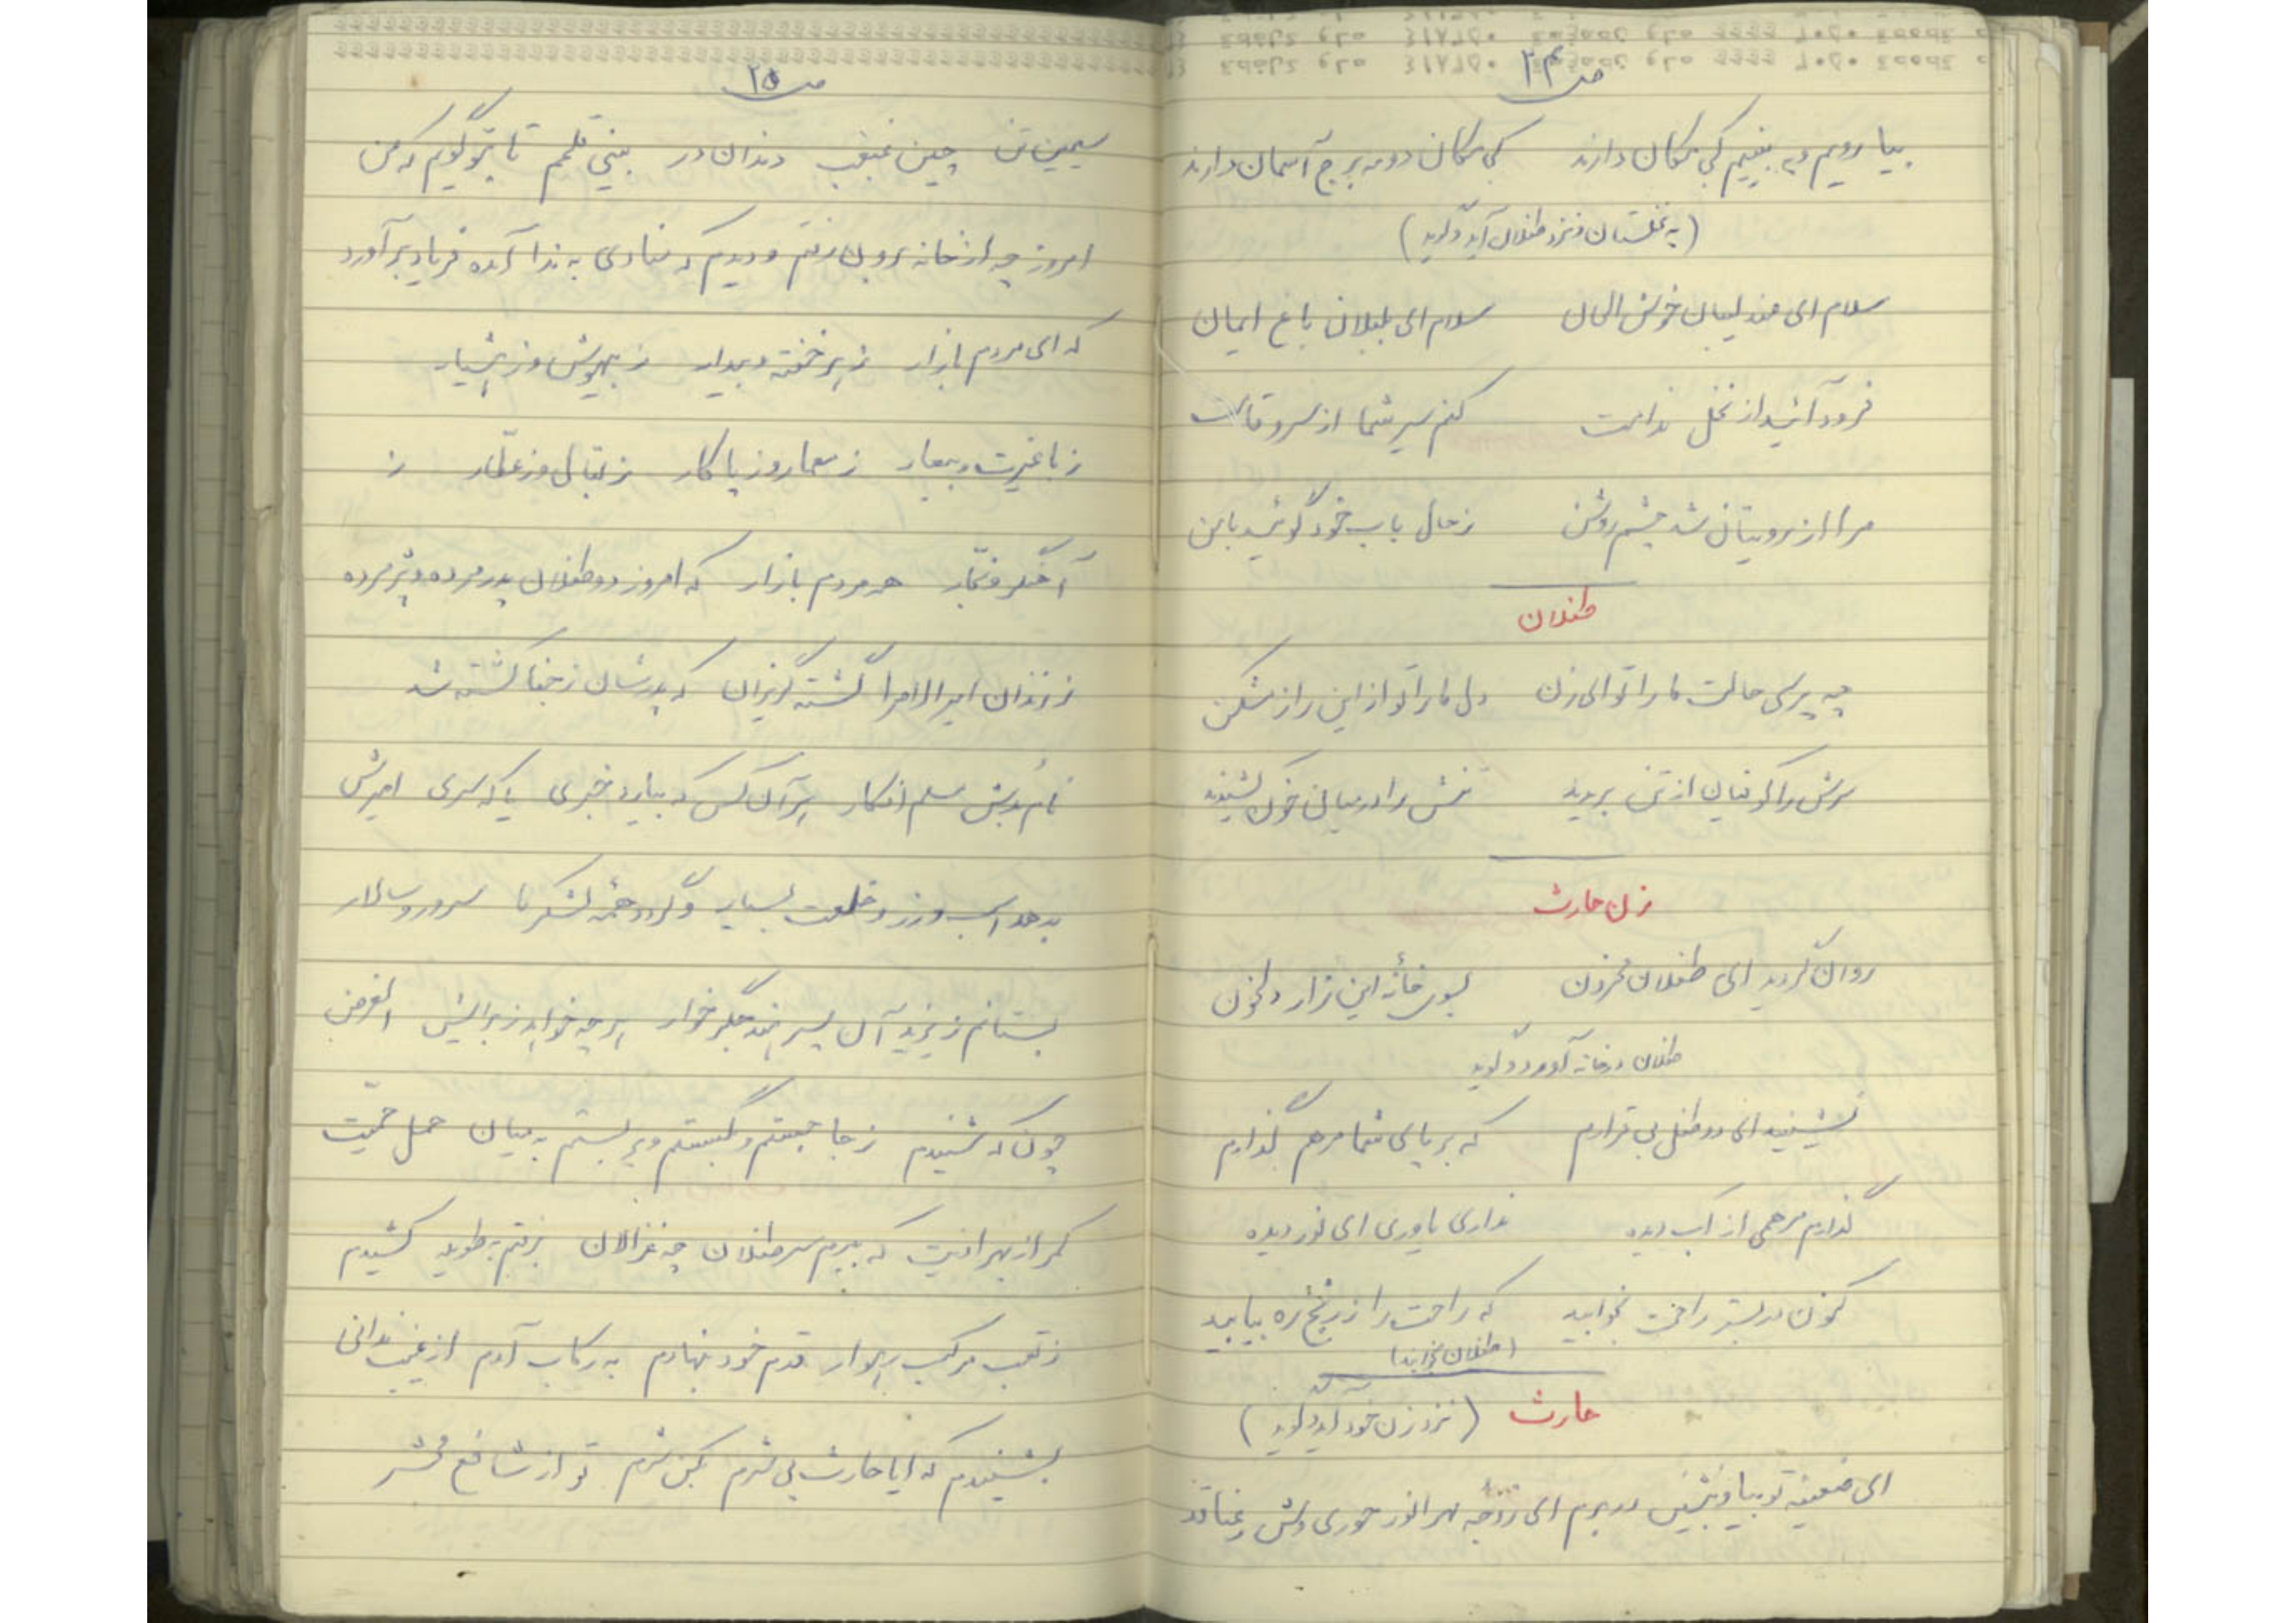 ص ۲۴
بیا رویم و به بینیم کی مکان دارند کی مکان دو مه برج آسمان دارند
(به نخلستان و نزد طفلان آید و گوید)
سلام ای عندلیبان خوش الحان سلام ای بلبلان باغ ایمان
فرود آئید از نخل ندامت کنم سیر شما از سرو قامت
مرا از رویتان شد چشم روشن ز حال باب خود گوئید با من
طفلان
چه پرسی حالت ما را تو ای زن دل ما را تو از این راز مشکن
سرش را کوفیان از تن بریدند تنش را در میان خون کشیدند
زن حارث
روان گردید ای طفلان محزون بسوی خانه این زار دلخون
طفلان در خانه آورد و گوید
نشینید ای دو طفل بی قرارم که بر پای شما مرهم گذارم
گذارم مرهمی از آب دیده نداری یاوری ای نور دیده
کنون در بستر راحت بخوابید که راحت را ز رنج ره بیابید
(طفلان بخوابند)
حارث (نزد زن خود آید و گوید)
ای ضعیفه تو بیا و بنشین در برم ای زوجه مه انور حوری وش رعنا قد
ص ۲۵
سیمین تن چین غبغب دندان در بینی قلمم تا بتو گویم که من
امروز چه از خانه برون رفتم و دیدم که منادی به ندا آمده فریاد برآورد
که ای مردم بازار ز هر خفته و بیدار ز بیهوش و ز هشیار
ز با غیرت و بیعار ز معمار و ز پاکار ز بقال و ز عطار ز
آهنگر و نجار همه مردم بازار که امروز دو طفلان پدر مرده و پژمرده
فرزندان امیر الامرا گشته گریزان که پدرشان ز جفا کشته شد
نام بابش مسلم افکار هر آن کس که بیارد خبری یا که سری امیرش
بدهد اسب و زر و خلعت بسیار و گردد همه لشکر ما سرور و سالار
بستانم ز یزید آن پسر هند جگر خوار هر چه خواهد ز برایش الغرض
چون که شنیدم ز جا جستم و بگسستم و بربستم به میان حمل حمیت
کمر از بهر اذیت که ببرم سر طفلان چه غزالان برفتم به طویله کشیدم
ز عقب مرکب رهوار قدم خود بنهادم به رکاب آدم از غیب ندائی
بشنیدم که ایا حارث بی شرم بکن شرم تو از شافع محشر